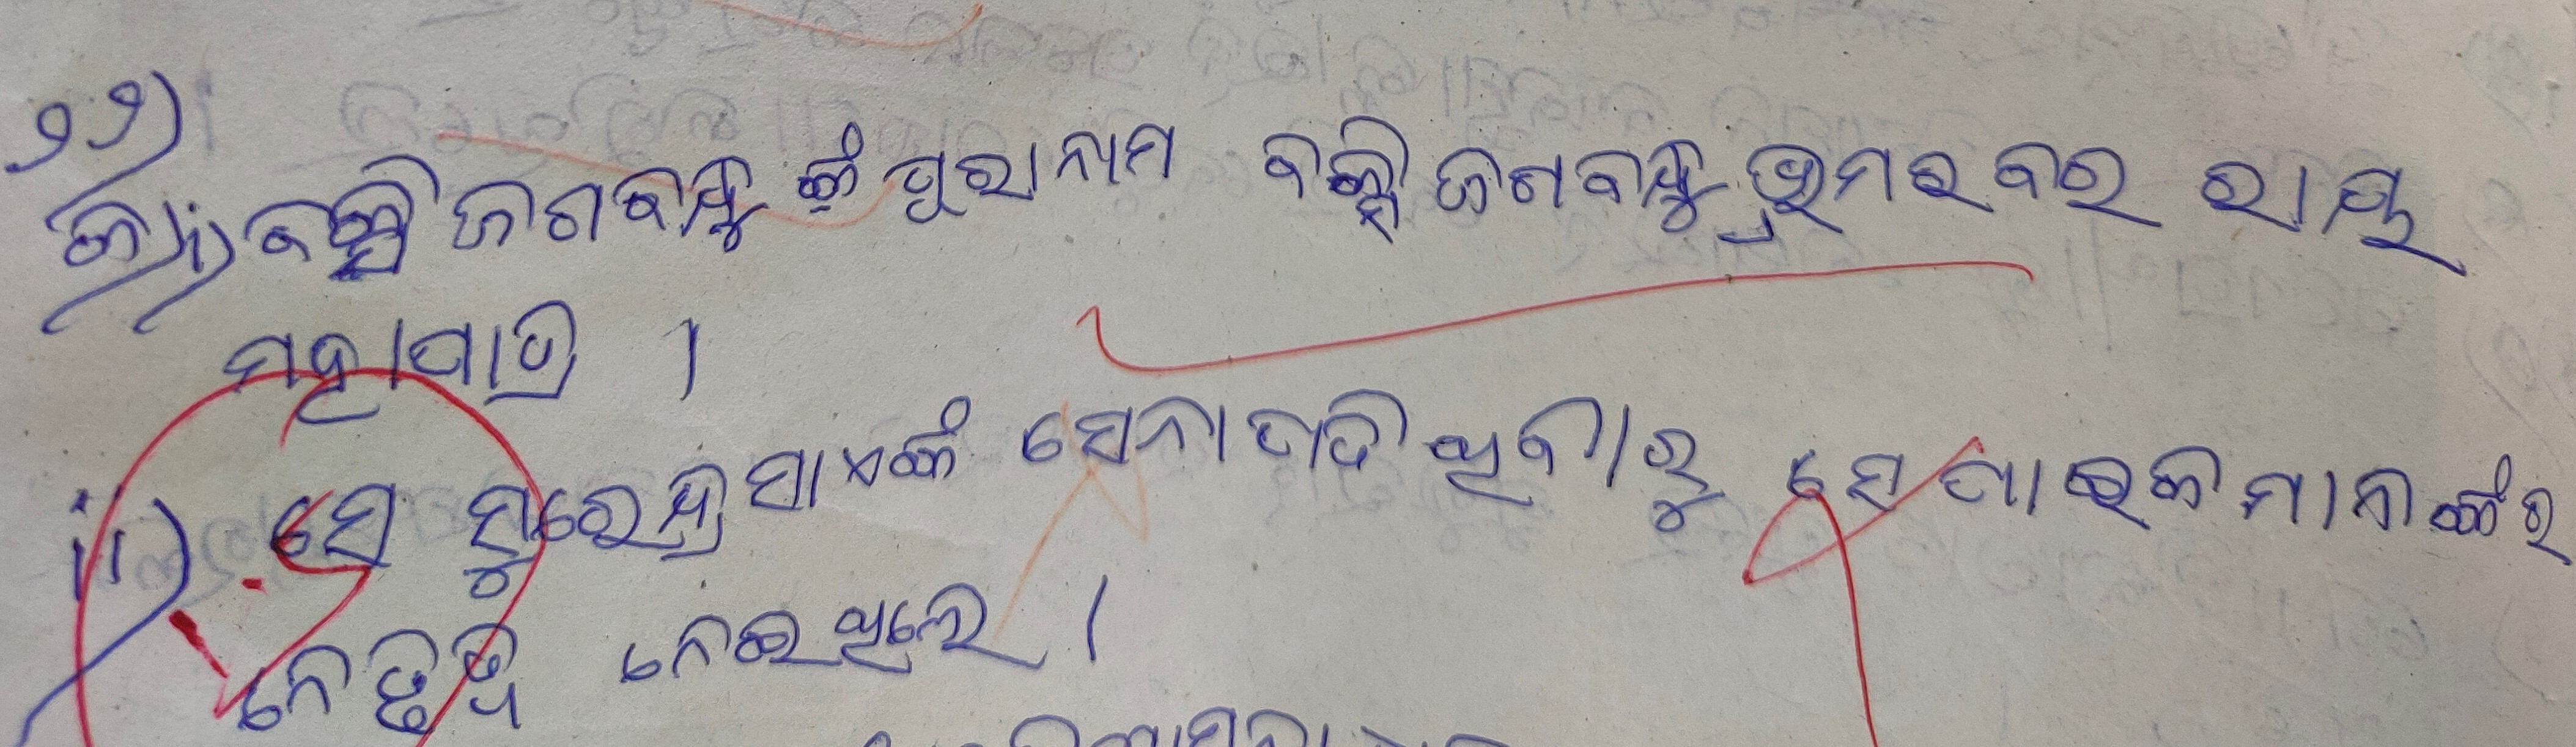 ୨୨)
କ) i) ବକ୍ସି ଜଗବନ୍ଧୁଙ୍କ ପୁରା ନାମ ବକ୍ସି ଜଗବନ୍ଧୁ ଭ୍ରମରବର ରାୟ
ମହାପାତ୍ର ।
ii) ସେ ସୁରେନ୍ଦ୍ରସାଏଙ୍କ ସେନାପତି ଥିବାରୁ ସେ ପାଇକମାନଙ୍କର
ନେତୃତ୍ୱ ନେଇଥିଲେ ।